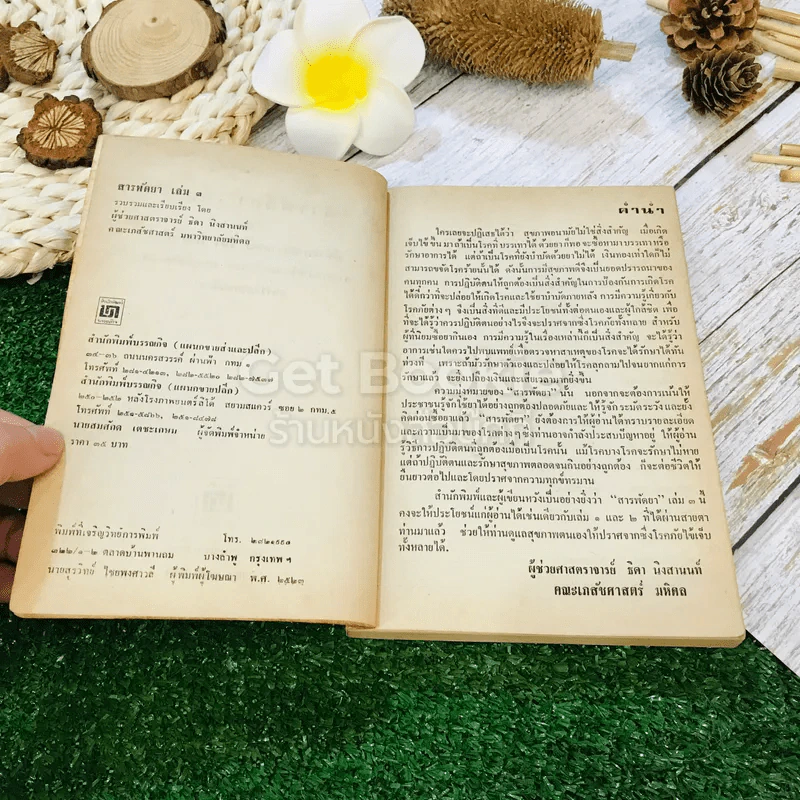 สารพัดยา เล่ม ๓
รวบรวมและเรียบเรียง โดย
ผู้ช่วยศาสตราจารย์ ธิดา นิงสานนท์
คณะเภสัชศาสตร์ มหาวิทยาลัยมหิดล
สำนักพิมพ์บรรณกิจ (แผนกขายส่งและปลีก)
๓๔-๓๖ ถนนนครสวรรค์ ผ่านฟ้า กทม.
โทรศัพท์
สำนักพิมพ์บรรณกิจ (แผนกขายปลีก)
หลังโรงภาพยนตร์ลิโด้ สยามสแควร์ ซอย ๒ กทม. ๕
โทรศัพท์
นายสมศักดิ์ เตชะเกษม ผู้จัดพิมพ์จำหน่าย
ราคา ๓๕ บาท
พิมพ์ที่เจริญวิทย์การพิมพ์ โทร.
ตลาดบ้านพานถม บางลำพู กรุงเทพฯ
นายสุรวิทย์ ไชยพงศาวลี ผู้พิมพ์ผู้โฆษณา พ.ศ. ๒๕๒๓
คำนำ
ใครเลยจะปฏิเสธได้ว่า สุขภาพอนามัยไม่ใช่สิ่งสำคัญ เมื่อเกิด
เจ็บไข้ ขึ้นมาถ้าเป็นโรคที่บรรเทาได้ ด้วยยา ก็พอ จะซื้อหามาบรรเทาหรือ
รักษาอาการได้ แต่ถ้าเป็นโรคที่ยังบำบัดด้วยยาไม่ได้ เงินทองเท่าใดก็ไม่
สามารถขจัดโรคร้ายนั้นได้ ดังนั้นการมีสุขภาพดีจึงเป็นยอดปรารถนาของ
คนทุกคน การปฏิบัติตนให้ถูกต้องเป็นสิ่งสำคัญในการป้องกันการเกิดโรค
ได้ดีกว่าที่จะปล่อยให้เกิดโรคและใช้ยาบำบัดภายหลัง การมีความรู้เกี่ยวกับ
โรคภัยต่าง ๆ จึงเป็นสิ่งที่ดีและมีประโยชน์ทั้งต่อตนเองและผู้ใกล้ชิด เพื่อ
ที่จะได้รู้ว่าควรปฏิบัติตนอย่างไรจึงจะปราศจากซึ่งโรคภัยทั้งหลาย สำหรับ
ผู้ที่นิยมซื้อยากินเอง การมีความรู้ในเรื่องเหล่านี้ก็เป็นสิ่งสำคัญ จะได้รู้ว่า
อาการเช่นใดควรไปพบแพทย์เพื่อตรวจหาสาเหตุของโรคจะได้รักษาได้ทัน
ท่วงที เพราะถ้ามัวรักษาตัวเองและปล่อยให้โรคลุกลามไปจนยากแก่การ
รักษาแล้ว จะยิ่งเปลืองเงินและเสียเวลามากยิ่งขึ้น
ความมุ่งหมายของ “สารพัดยา” นั้น นอกจากจะต้องการเน้นให้
ประชาชนรู้จักใช้ยาได้อย่างถูกต้องปลอดภัยและ ให้ รู้จัก ระมัดระวัง และยั้ง
คิดก่อนซื้อยาแล้ว “สารพัดยา” ยังต้องการให้ผู้อ่านได้ทราบรายละเอียด
และความเป็นมาของโรคต่าง ๆ ซึ่งท่านอาจกำลังประสบปัญหาอยู่ ให้ผู้อ่าน
รู้วิธีการปฏิบัติตนที่ถูกต้องเมื่อเป็นโรคนั้น แม้โรคบางโรคจะรักษาไม่หาย
แต่ถ้าปฏิบัติตนและรักษาสุขภาพตลอดจนกินอย่างถูกต้อง ก็จะต่อชีวิตให้
ยืนยาวต่อไปและโดยปราศจากความทุกข์ทรมาน
สำนักพิมพ์และผู้เขียนหวังเป็นอย่างยิ่งว่า “สารพัดยา” เล่ม ๓ นี้
คงจะให้ประโยชน์แก่ผู้อ่านได้เช่นเดียวกับเล่ม ๑ และ ๒ ที่ได้ผ่านสายตา
ท่านมาแล้ว ช่วยให้ท่านดูแลสุขภาพตนเองให้ปราศจากซึ่งโรคภัยไข้เจ็บ
ทั้งหลายได้.
ผู้ช่วยศาสตราจารย์ ธิดา นิงสานนท์
คณะเภสัชศาสตร์ มหิดล